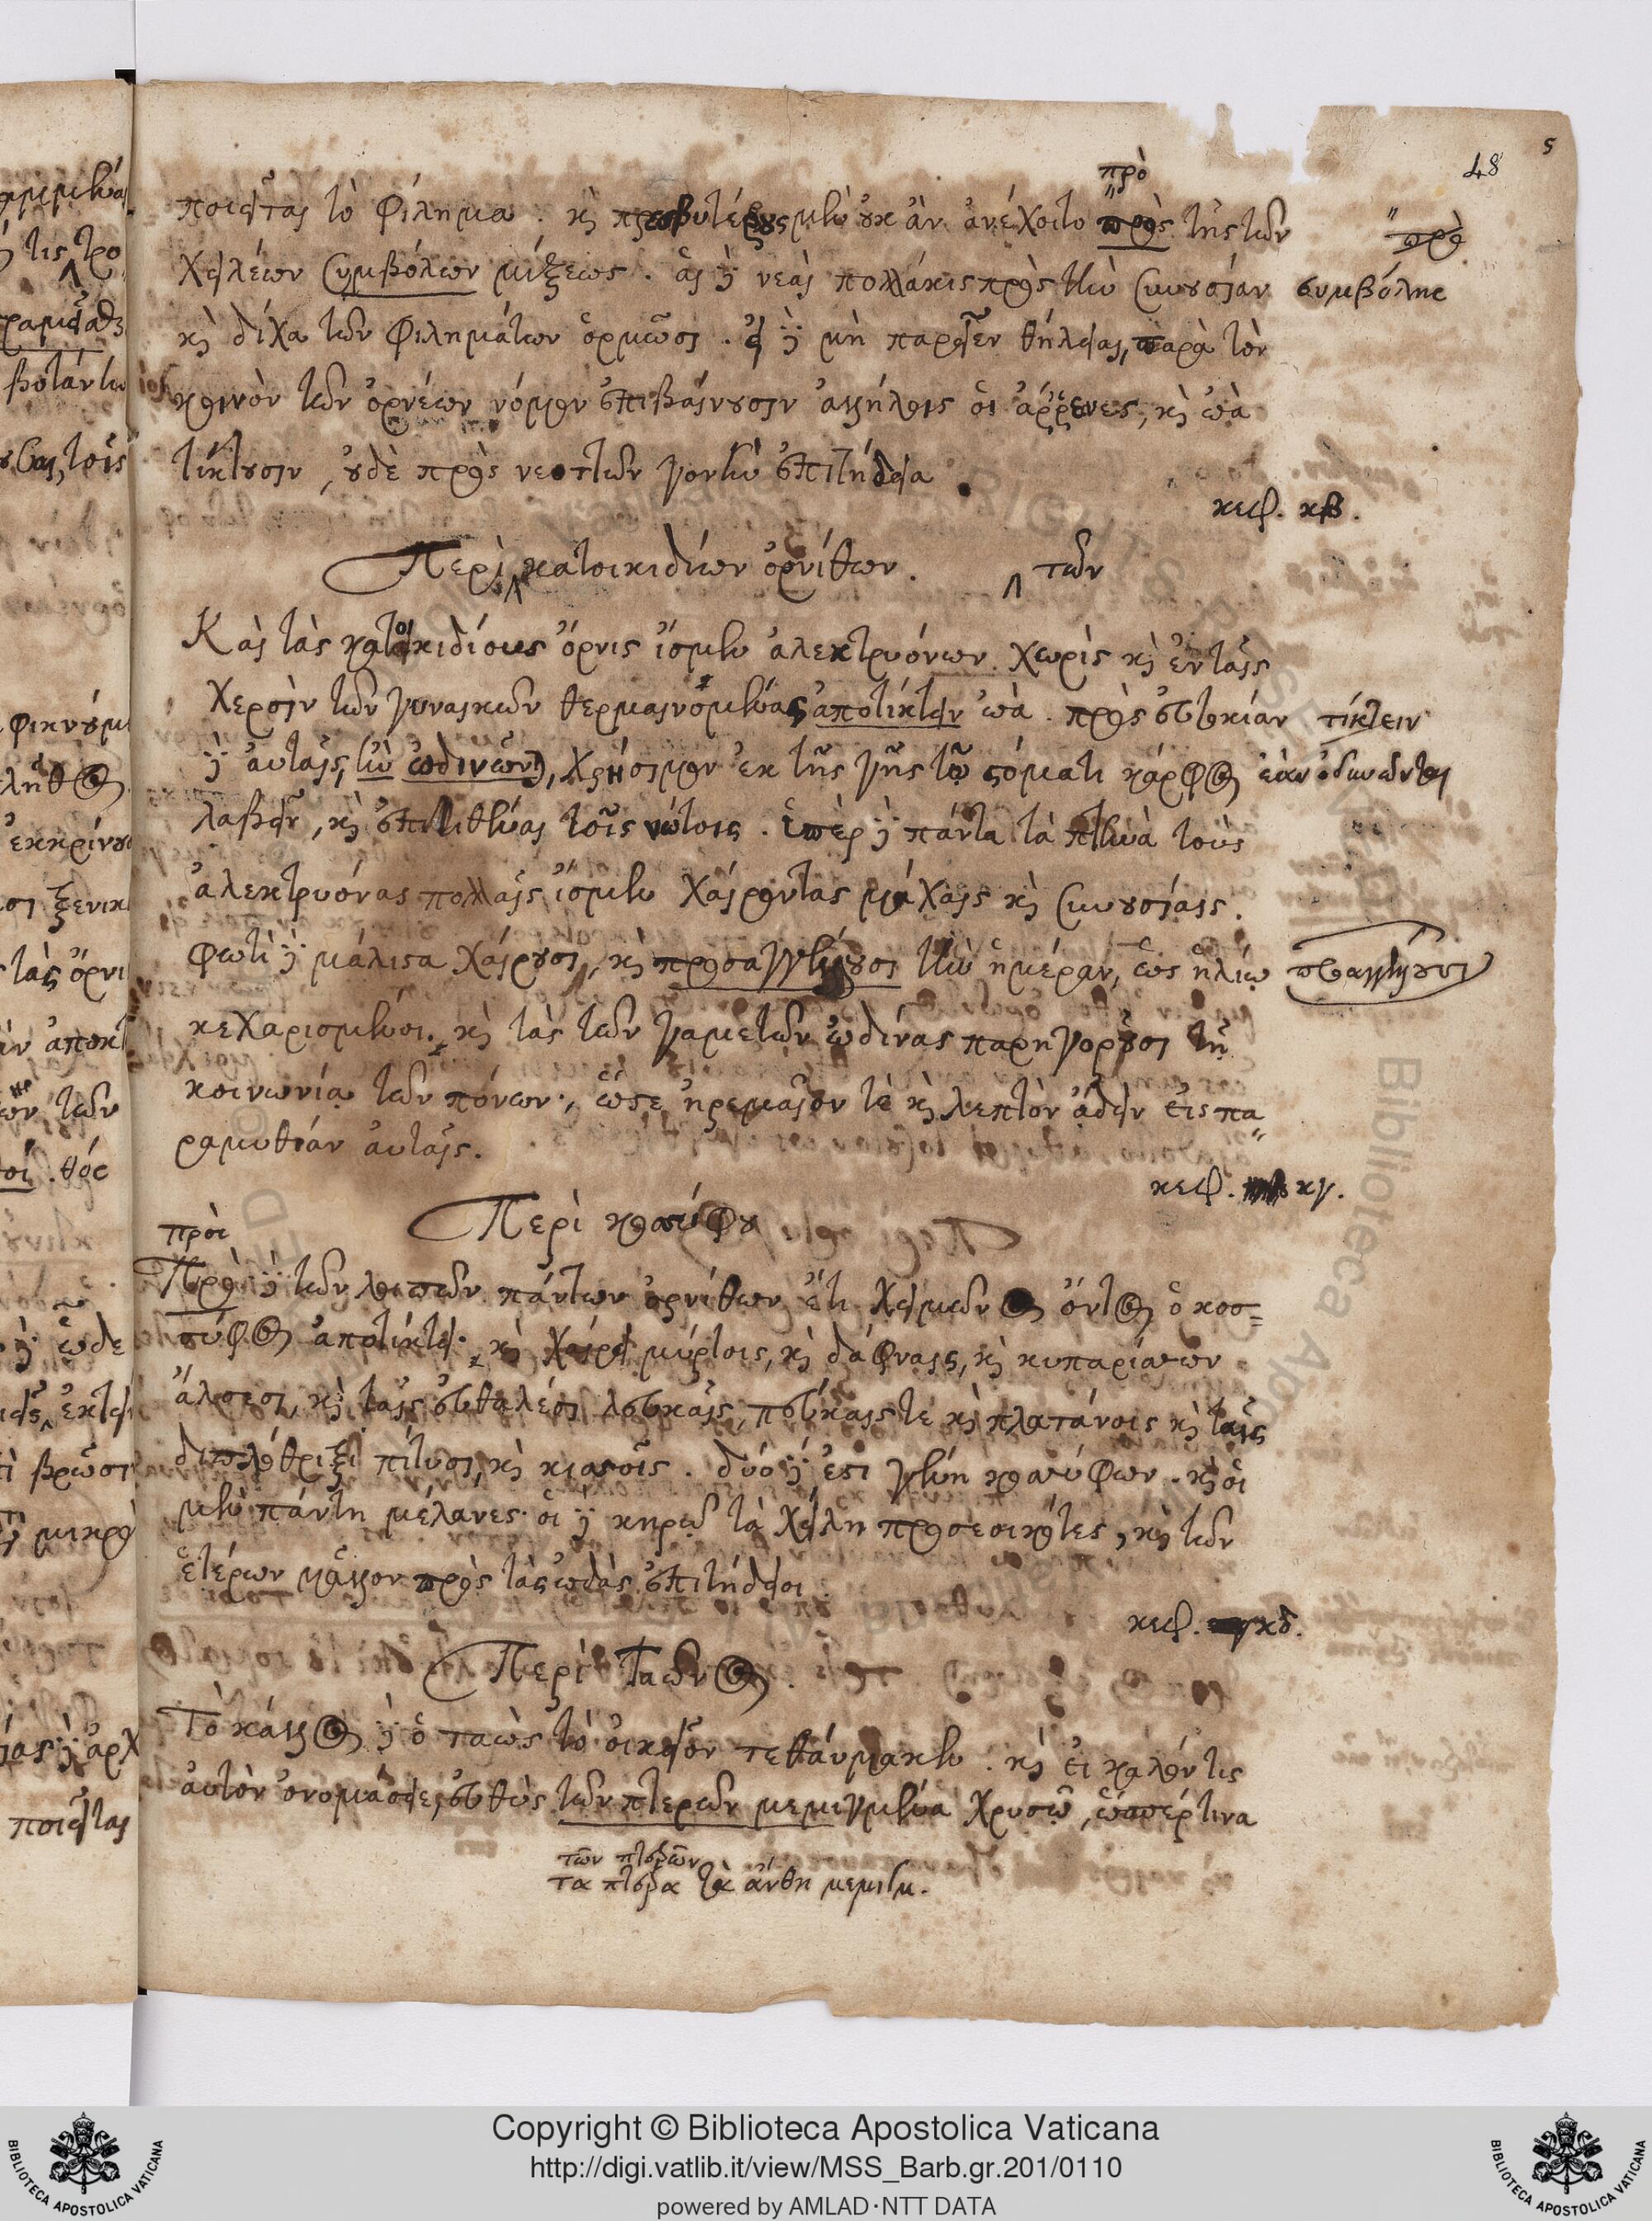 48
5
πρὸ
ποιεῖται τὸ φίλημα. κὶ πρεσβυτέρους μὲν οὐκ ἂν ἀνέχοιτο πρὸς τῆς τῶν
πρὸ
χειλέων συμβόλων μίξεως. αἱ δὲ νέαι πολλάκις πρὸς τὴν συνουσίαν
συμβόλης
κὶ δίχα τῶν φιλημάτων ὁρμῶσι. εἰ δὲ μὴ παρεῖεν θήλειαι, παρὰ τὸν
κοινὸν τῶν ὀρνέων νόμον ἐπιβαίνουσιν ἀλλήλοις οἱ ἄρρενες, κὶ ὠὰ
τίκτουσιν, οὐδὲ πρὸς νεοττῶν γονὴν ἐπιτήδεια.
κεφ. κβ.
Περὶ κατοικιδίων ὀρνίθων.
τῶν
Καὶ τὰς κατοικιδίους ὄρνις ἴσμεν ἀλεκτρυόνων χωρὶς κὶ ἐν ταῖς
χερσὶν τῶν γυναικῶν θερμαινομένας ἀποτίκτειν ὠά. πρὸς εὐτοκίαν
τίκτειν
δὲ αὐταῖς, ἢν ὠδινῶνται, χρήσιμον ἐκ τῆς γῆς τῷ στόματι κάρφος
ἐὰν ὀδυνῶνται
λαβεῖν, κὶ ἐπιτιθέναι τοῖς νώτοις. ὑπὲρ δὲ πάντα τὰ πτηνὰ τοὺς
ἀλεκτρυόνας πολλαῖς ἴσμεν χαίροντας μάχαις κὶ συνουσίαις.
φωτὶ δὲ μάλιστα χαίρουσι, κὶ προσαγγέλλουσι τὴν ἡμέραν, ὡς ἡλίῳ
προαγγέλλουσι
κεχαρισμένοι. κὶ τὰς τῶν γαμετῶν ὠδίνας παρηγοροῦσι τῇ
κοινωνίᾳ τῶν πόνων, ὥστε ἠρεμαῖόν τε κὶ λεπτὸν ᾄδειν εἰς πα
ραμυθίαν αὐταῖς.
κεφ. κγ.
Περὶ κοσσύφου
πρὸ
Πρὸ δὲ τῶν λοιπῶν πάντων ὀρνίθων ἔτι χειμῶνος ὄντος ὁ κοσ=
σύφος ἀποτίκτει. κὶ χαίρει μύρτοις, κὶ δάφναις, κὶ κυπαρίσσων
ἄλσεσι, κὶ ταῖς εὐθαλέσι λευκαῖς, πεύκαις τε κὶ πλατάνοις κὶ ταῖς
πίτυσι, κὶ κισσοῖς. δύο δὲ ἐστι γένη κοσσύφων. κὶ οἱ
μὲν πάντη μέλανες· οἱ δὲ κηρῷ τὰ χείλη προσεοικότες, κὶ τῶν
ἑτέρων μᾶλλον πρὸς τὰς ᾠδὰς ἐπιτήδειοι.
κεφ. κδ.
Περὶ Ταῶνος.
Τὸ κάλλος δὲ ὁ ταὼς τὸ οἰκεῖον τεθαύμακεν. κὶ εἰ καλόν τις
αὐτὸν ὀνομάσειε, εὐθὺς τῶν πτερῶν μεμιγμένα χρυσῷ, ὥσπερ τινα
τῶν πτερῶν
τα πτερα τὰ ἄνθη μεμιγμ.
Copyright © Biblioteca Apostolica Vaticana
http://digi.vatlib.it/view/MSS_Barb.gr.201/0110
powered by AMLAD·NTT DATA
BIBLIOTECA APOSTOLICA VATICANA
BIBLIOTECA APOSTOLICA VATICANA